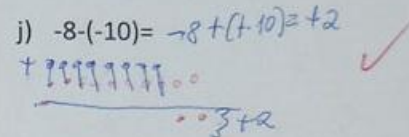 j) -8-(-10)= -8+(+10)=+2
+
}+2